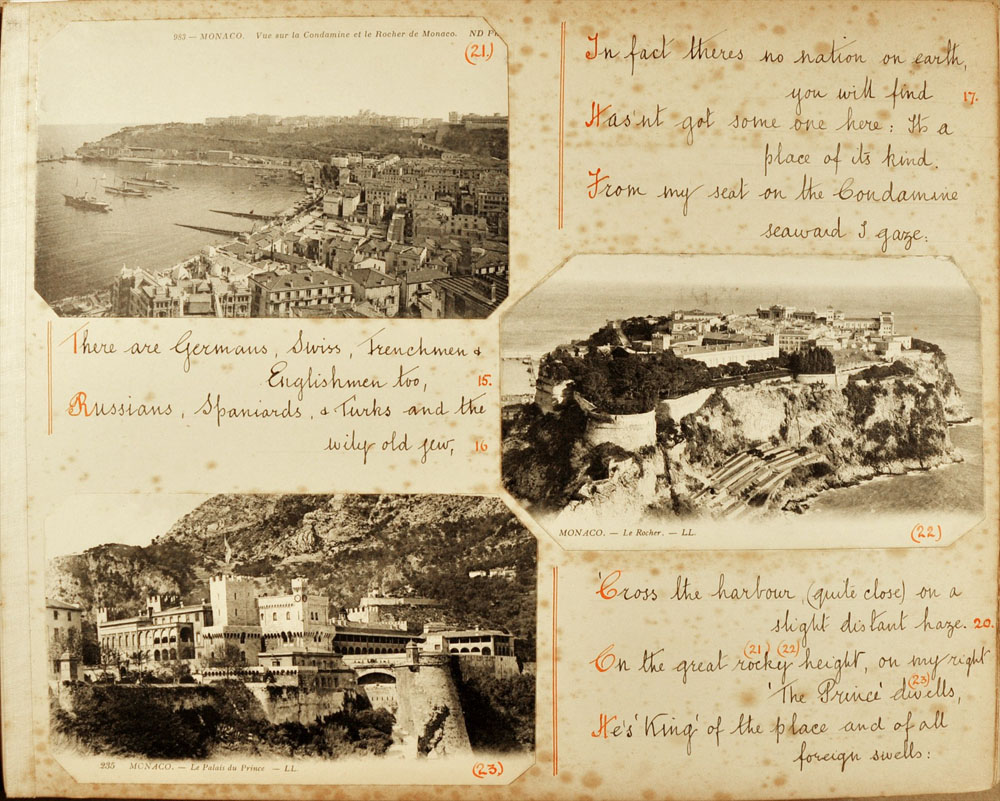 983 — MONACO. Vue sur la Condamine et le Rocher de Monaco. ND
(21.)
There are Germans, Swiss, Frenchmen &
Englishmen too, 15.
Russians, Spaniards, & Turks and the
wily old Jew, 16
235 MONACO. — Le Palais du Prince — LL.
(23)
In fact theres no nation on earth,
you will find 17.
Has'nt got some one here: Its a
place of its kind.
From my seat on the Condamine
seaward I gaze.
MONACO. — Le Rocher. — LL.
(22)
'Cross the harbour (quite close) on a
slight distant haze. 20.
On the great rocky height, on my right
(21) (22)
'The Prince' dwells,
(23)
He's 'King' of the place and of all
foreign swells: